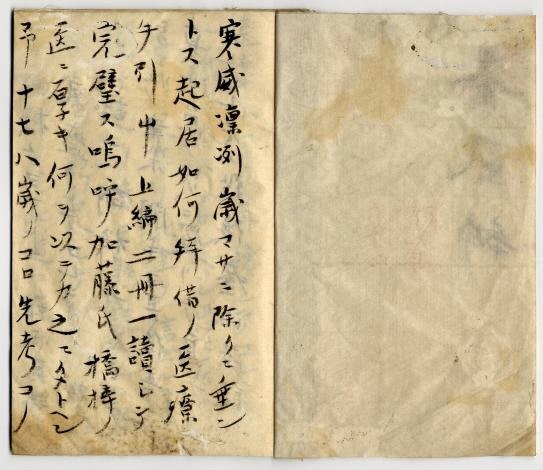 寒威凛冽歳マサニ除クニ垂ン
トス起居如何拜借ノ医療
手引艸上編二冊一讀シテ
完璧ス嗚呼加藤氏ノ
医ニ何ヲ以ニカ之ニ
予十七八歳ノコロ先考コノ